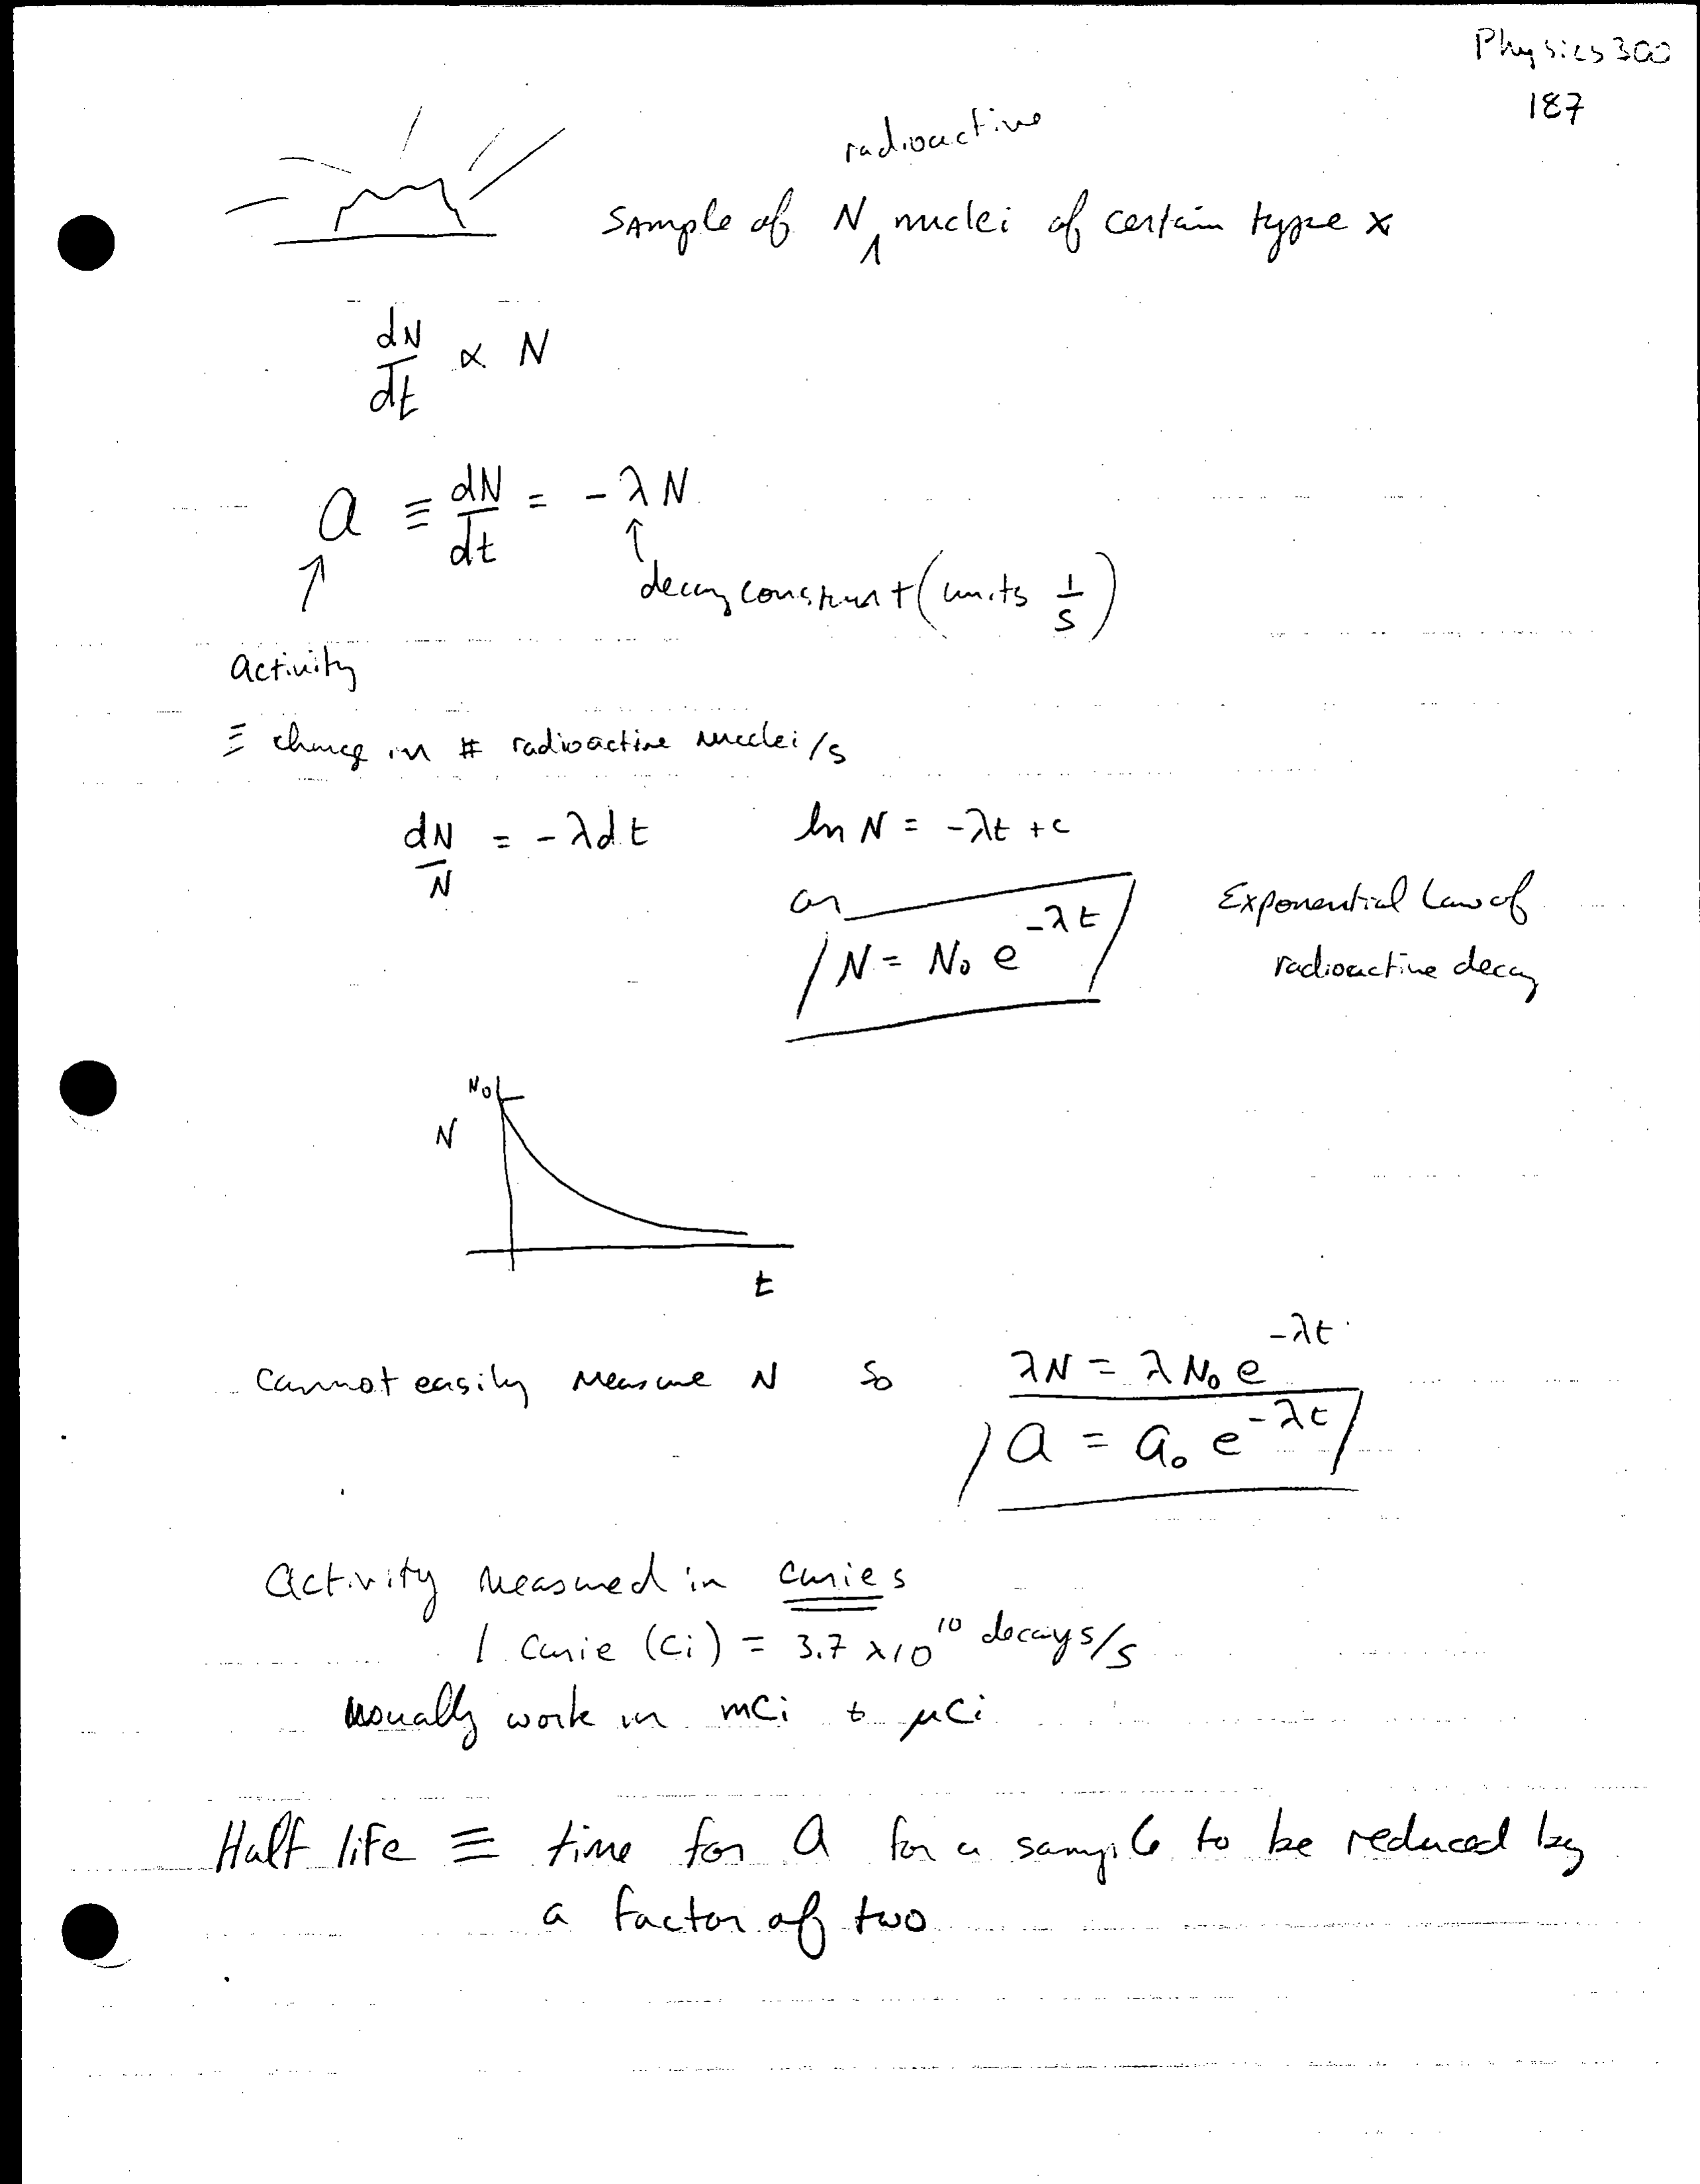 Physics 300
187
radioactive
Sample of N ∧ nuclei of certain type x
dN/dt ∝ N
a ≡ dN/dt = -λN
decay constant (units 1/s)
activity
≡ change in # radioactive nuclei/s
dN/N = -λdt ln N = -λt + c
or
N = N₀ e^-λt Exponential Law of
radioactive decay
N₀
N
t
Cannot easily measure N so λN = λN₀ e^-λt
a = a₀ e^-λt
Activity measured in curies
1 Curie (Ci) = 3.7 x 10^10 decays/s
usually work in mCi & μCi
Half life ≡ time for a for a sample to be reduced by
a factor of two